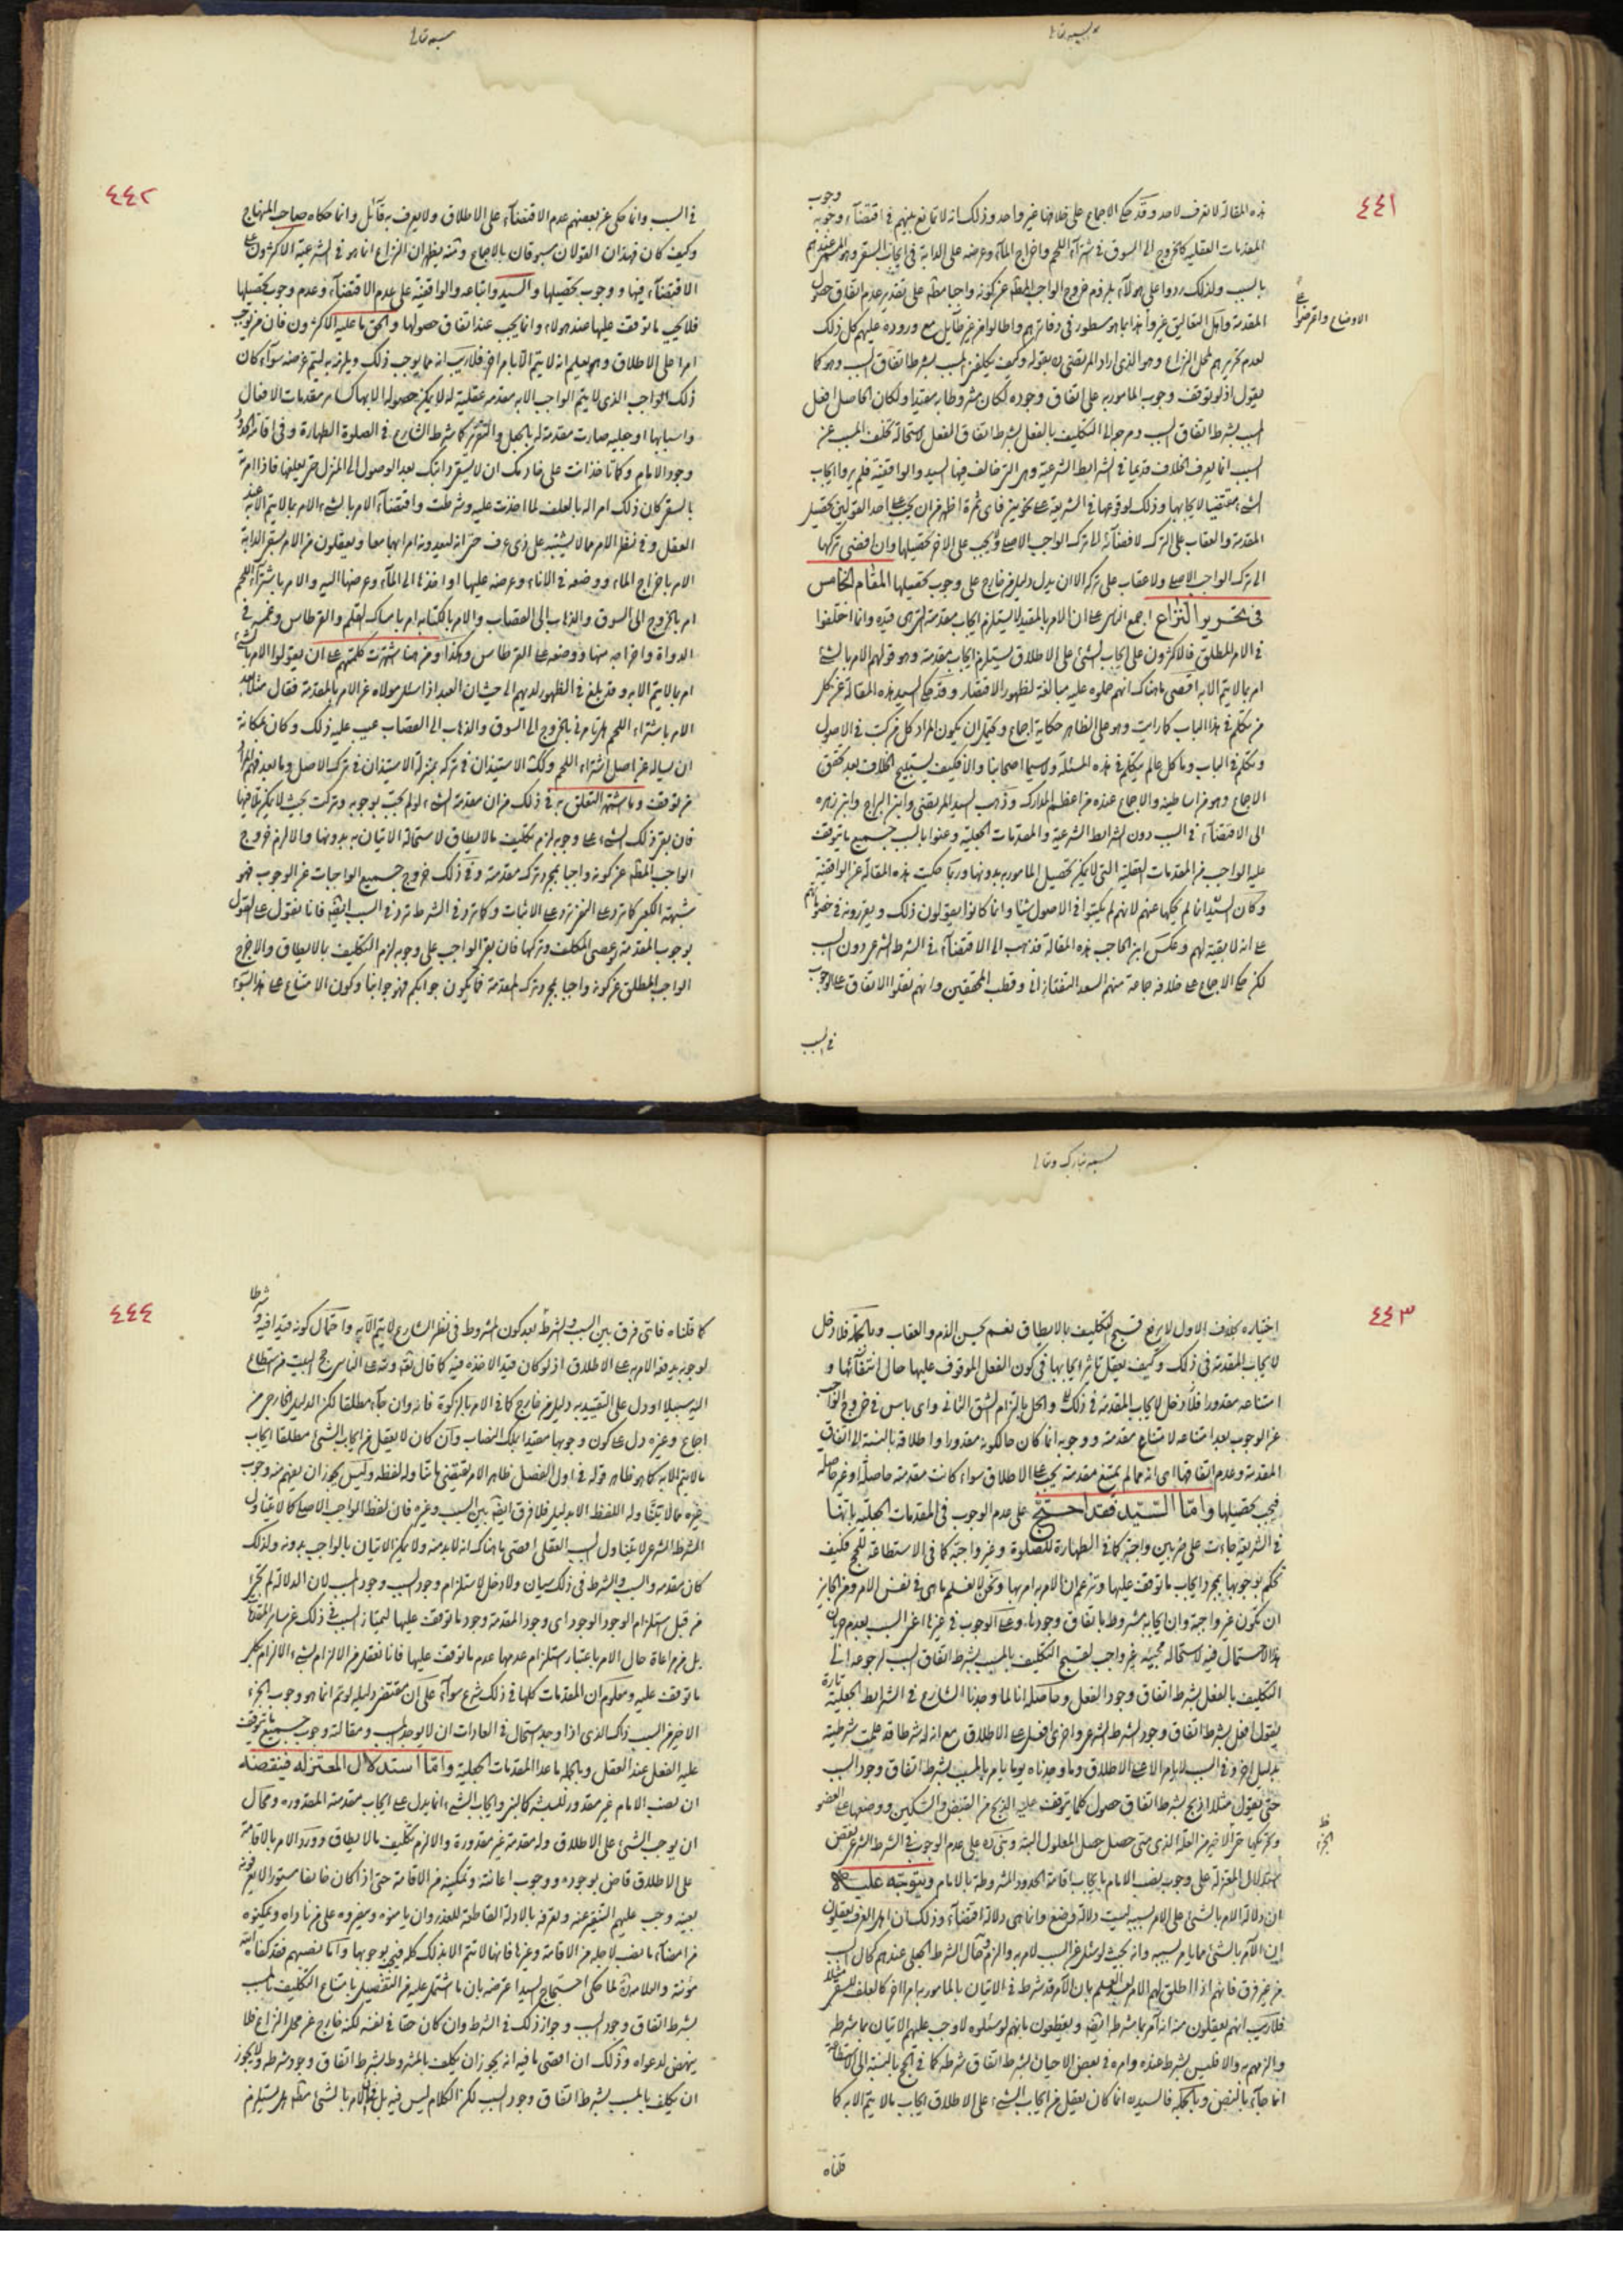 ٤٤١
هذه المقالة لا تعرف لاحد وقد حكى الاجماع على خلافها غير واحد وذلك انه لا تمانع بينهم في اقتضاء وجوب
المقدمات العقلية كالخروج الى السوق في شراء اللحم واخراج الماء وعرضه على الدابة في ايجاب السقي وهو المسمى عندهم
بالسبب ولذلك ردوا على هؤلاء بلزوم خروج الواجب المطلق عن كونه واجبا مطلقا على تقدير عدم اتفاق حصول
لعدم تحريرهم لمحل النزاع وهو الذي اراد المرتضى ره بقوله وكيف يكلف بالمسبب بشرط اتفاق السبب وهو كما
يقول اذ لو توقف وجوب المأمور به على اتفاق وجوده لكان مشروطا به مقيدا ولكان الحاصل افعل
المسبب بشرط اتفاق السبب ومرجعه الى التكليف بالفعل بشرط اتفاق الفعل لاستحالة تخلف المسبب عن
السبب انما يعرف الخلاف قديما في الشرائط الشرعية وهي التي خالف فيها السيد والواقفية فلم يروا ايجاب
المقدمة والعقاب على الترك لافضائه الى ترك الواجب الاصلي ولا يجب على الاخر تحصيلها وان افضى تركها
الى ترك الواجب الاصلي ولا عقاب على تركه الا ان يدل دليل من خارج على وجوب تحصيلها المقام الخامس
في تحرير النزاع اجمع الناس على ان الامر بالمقيد لا يستلزم ايجاب مقدمته التي هي قيده وانما اختلفوا
في الامر المطلق فالاكثرون على ان ايجاب الشئ على الاطلاق يستلزم ايجاب مقدمته وهو قولهم الامر بالشئ
امر بما لا يتم الا به اقصى ما هناك انهم حملوه عليه مبالغة لظهور الاقتضاء وقد حكى السيد هذه المقالة عن كل
من تكلم في هذا الباب كما رايت وهو على الظاهر حكاية اجماع ويحتمل ان يكون المراد كل من كتب في الاصول
وتكلم في الباب وما كل عالم يتكلم في هذه المسئلة ولا سيما اصحابنا والا فكيف يستبيح الخلاف بعد تحقق
الاجماع وهو من اساطينه والاجماع عنده من اعظم المدارك وذهب السيد المرتضى وابن البراج وابن زهره
الى الاقتضاء في السبب دون الشرائط الشرعية والمقدمات الجعلية وعنوا بالسبب جميع ما يتوقف
عليه الواجب من المقدمات العقلية التي لا يمكن تحصيل المامور به بدونها وربما حكيت هذه المقالة عن الواقفية
وكان السيد انما لم يحكها عنهم لانهم لم يكتبوا في الاصول شيئا وانما كانوا يقولون ذلك ويقررونه في
على انه لا بقية لهم وعكس ابن الحاجب هذه المقالة فذهب الى الاقتضاء في الشرط الشرعي دون السبب
لكن حكى الاجماع على خلافه جماعة منهم السعد التفتازاني وقطب المحققين وانهم نقلوا الاتفاق على الوجوب
في السبب
٤٤٢
في السبب وانما حكى عن بعضهم عدم الاقتضاء على الاطلاق ولا يعرف به قائل وانما حكاه صاحب المنهاج
وكيف كان فهذان القولان مسبوقان بالاجماع ومنه يظهر ان النزاع انما هو في الشرعية الاكثرون على
الاقتضاء فيها ووجوب تحصيلها والسيد واتباعه والواقفية على عدم الاقتضاء وعدم وجوب تحصيلها
فلا يجب ما توقفت عليها عند هولاء وانما يجب عند اتفاق حصولها والحق ما عليه الاكثرون فان من يوجب
امرا على الاطلاق وهو يعلم انه لا يتم الا بامر اخر فلا ريب انه مما يوجب ذلك ويلزم به ليتم غرضه سواء كان
ذلك الواجب الذي لا يتم الواجب الا به مقدمة عقلية له لا يمكن حصوله الا بها كسائر مقدمات الافعال
واسبابها او جعلية صارت مقدمة له بالجعل والتقرير كما شرط الشارع في الصلوة الطهارة وفي اقامة الحدود
وجود الامام وكما تاخذ انت على خادمك ان لا يسقي دابتك بعد الوصول الى المنزل حتى يعلفها فاذا امرته
بالسقي كان ذلك امرا له بالعلف لما اخذت عليه وشرطت واقتضاء الامر بالشئ الامر بما لا يتم الا به عند
العقل وفي نفس الامر مما لا يشتبه على ذي عرف حتى انه ليعدونه امرا بهما معا ويعقلون من الامر بسقي الدابة
الامر باخراج الماء ووضعه في الاناء وعرضه عليها او اخذها الى الماء وعرضها اليه والامر باشتراء اللحم
امر بالخروج الى السوق والذهاب الى القصاب والامر بالكتابة امر بامساك القلم والقرطاس وغمسه في
الدواة واخراجه منها ووضعه على القرطاس وهكذا ومن هنا اشتهرت كلمتهم على ان يقولوا الامر بالشئ
امر بما لا يتم الا به وقد بلغ في الظهور لديهم الى حيث ان العبد اذا سئل مولاه عن الامر بالمقدمة فقال مثلا بعد
الامر باشتراء اللحم اتامرني بالخروج الى السوق والذهاب الى القصاب عيب عليه ذلك وكان بمكانة
ان يساله عن اصل اشتراء اللحم وكذا الاستيذان في تركه بمنزلة الاستيذان في ترك الاصل وما بعد فهم المراد
من توقف وما اشتهر التعلق به في ذلك من ان مقدمة الشئ لو لم تجب بوجوبه وتركت بحيث لا يمكن تلافيها
فان بقي ذلك الشئ على وجوبه لزم تكليف ما لا يطاق لاستحالة الاتيان به بدونها والا لزم خروج
الواجب المطلق عن كونه واجبا بمجرد ترك مقدمته وفي ذلك خروج جميع الواجبات عن الوجوب فهو
بوجوب المقدمة لو عصى المكلف وتركها فان بقي الواجب على وجوبه لزم التكليف بما لا يطاق والا خرج
الواجب المطلق عن كونه واجبا بمجرد ترك المقدمة فما يكون جوابكم فهو جوابنا وكون الامتناع على هذا بسوء
٤٤٣
اختياره بخلاف الاول لا يرفع قبح التكليف بما لا يطاق نعم يحسن الذم والعقاب وبالجملة فلا دخل
لايجاب المقدمة في ذلك وكيف يعقل تاثير ايجابها في كون الفعل الموقوف عليها حال انتفائها و
امتناعه مقدورا فلا دخل لايجاب المقدمة في ذلك والحل بالتزام الشق الثاني واي باس في خروج الواجب
عن الوجوب بعد امتناعه لامتناع مقدمته ووجوبه انما كان حال كونه مقدورا واطلاقه بالنسبة الى اتفاق
المقدمة وعدم اتفاقها اي انه ما لم يمتنع مقدمته يجب على الاطلاق سواء كانت مقدمته حاصلة او غير حاصلة
فيجب تحصيلها واما السيد فقد احتج على عدم الوجوب في المقدمات الجعلية بانها
في الشريعة جاءت على ضربين واجبة كما في الطهارة للصلوة وغير واجبة كما في الاستطاعة للحج فكيف
نحكم بوجوبها بمجرد ايجاب ما توقف عليها ونزعم ان الامر به امر بها ونحن لا نعلم ما هي في نفس الامر ومن الجايز
ان تكون غير واجبة وان ايجابه مشروط باتفاق وجودها وعلى الوجوب في غيرها اعني السبب بعدم جريان
هذا الاحتمال فيه لاستحالة مجيئه غير واجب لقبح التكليف بالمسبب بشرط اتفاق السبب لرجوعه الى
التكليف بالفعل بشرط اتفاق وجود الفعل وحاصله انا لما وجدنا الشارع في الشرائط الجعلية تارة
يقول افعل بشرط اتفاق وجود الشرط الشرعي واخرى افعل على الاطلاق مع انه له شرطا قد علمت شرطيته
بدليل اخر وفي السبب لا يامر الا على الاطلاق وما وجدناه يوما يامر بالمسبب بشرط اتفاق وجود السبب
حتى يقول مثلا اذبح بشرط اتفاق حصول كلما يتوقف عليه الذبح من القبض والسكين ووضعها على العضو
وتحريكها حتى الاخير من العلة الذي متى حصل حصل المعلول البتة وبنى ره على عدم الوجوب في الشرط الشرعي نقض
استدلال المعتزلة على وجوب نصب الامام بايجاب اقامة الحدود المشروطة بالامام ويتوجه عليه
ان دلالة الامر بالشئ على الامر بسببه ليست دلالة وضع وانما هي دلالة اقتضاء وذلك ان اهل العرف يعقلون
ان الآمر بالشئ مما يامر بسببه وانه بحيث لو سئل عن السبب لامر به والزم وحال الشرط الجعلي عندهم كحال السبب
من غير فرق فانهم اذا اطلق لهم الامر بعد العلم بان الآمر قد شرط في الاتيان بالمامور به امرا اخر كالعلف للسقي مثلا
فلا ريب انهم يعقلون منه انه آمر بما شرطه ايضا ويقطعون بانهم لو سئلوه لاوجب عليهم الاتيان بما شرطه
والزمهم به والا فليس بشرط عنده وامره في بعض الاحيان بشرط اتفاق شرطه كما في الحج بالنسبة الى الاستطاعة
انما جاء بالنص وبالجملة فالسيد ره انما كان يعقل من ايجاب الشئ على الاطلاق ايجاب ما لا يتم الا به كما
قلناه
٤٤٤
كما قلناه فاي فرق بين السبب والشرط بعد كون المشروط في نظر الشارع لا يتم الا به واحتمال كونه قيدا فيه وشرطا
لوجوبه يدفعه الامر به على الاطلاق اذ لو كان قيدا لاخذه فيه كما قال تعالى ولله على الناس حج البيت من استطاع
اليه سبيلا او دل على التقييد به دليل من خارج كما في الامر بالزكوة فانه وان جاء مطلقا لكن الدليل الخارجي من
اجماع وغيره دل على كون وجوبها مقيدا بملك النصاب وان كان لا يعقل من ايجاب الشئ مطلقا ايجاب
ما لا يتم الا به كما هو ظاهر قوله في اول الفصل ظاهر الامر يقتضي ما تناوله لفظه وليس يجوز ان يفهم منه وجوب
غيره مما لا يتناوله اللفظ الا بدليل فلا فرق ايضا بين السبب وغيره فان لفظ الواجب الاصلي كما لا يتناول
الشرط الشرعي لا يتناول السبب العقلي اقصى ما هناك انه لا بد منه ولا يمكن الاتيان بالواجب بدونه ولذلك
كان مقدمة والسبب والشرط في ذلك سيان ولا دخل لاستلزام وجود السبب وجود المسبب لان الدلالة لم تجئ
من قبل استلزام الوجود الوجود اي وجود المقدمة وجود ما توقفت عليها ليمتاز السبب في ذلك عن سائر المقدمات
بل من مراعاة حال الامر باعتبار استلزام عدمها عدم ما توقفت عليها فانا نعقل من الالزام بشئ الالزام بكل
ما توقفت عليه ومعلوم ان المقدمات كلها في ذلك شرع سواء على ان مقتضى دليله لو تم انما هو وجوب الجزء
الاخير من السبب ذاك الذي اذا وجد استحال في العادات ان لا يوجد المسبب ومقالته وجوب جميع ما يتوقف
عليه الفعل عند العقل وبالجملة ما عدا المقدمات الجعلية واما استدلال المعتزلة فينقضه
ان نصب الامام غير مقدور للبشر كالنبي وايجاب الشئ انما يدل على ايجاب مقدمته المقدورة ومحال
ان يوجب الشئ على الاطلاق وله مقدمة غير مقدورة والا لزم تكليف ما لا يطاق وورود الامر بالاقامة
على الاطلاق قاض بوجوده ووجوب اعانته وتمكينه من الاقامة حتى اذا كان خائفا مستورا لا يعرفونه
بعينه وجب عليهم التنقير عنه وتعرفه بالادلة القاطعة للعذر وان يامنوه وينصروه على من ناواه ويمكنوه
من امضاء ما نصب لاجله من الاقامة وغيرها فانها لا تتم الا بذلك كله فيجب بوجوبها واما نصبهم فقد كفاه الله
مؤنته والعلامة ره لما حكى احتجاج السيد اعترضه بان ما اشتمل عليه من التفصيل بامتناع التكليف بالمسبب
بشرط اتفاق وجود السبب وجواز ذلك في الشرط وان كان حقا في نفسه لكنه خارج عن محل النزاع فلا
ينهض لدعواه وذلك ان اقصى ما فيه انه يجوز ان يكلف بالمشروط بشرط اتفاق وجود شرطه ولا يجوز
ان يكلف بالمسبب بشرط اتفاق وجود السبب لكن الكلام ليس فيه بل في ان الامر بالشئ مطلقا هل يستلزم